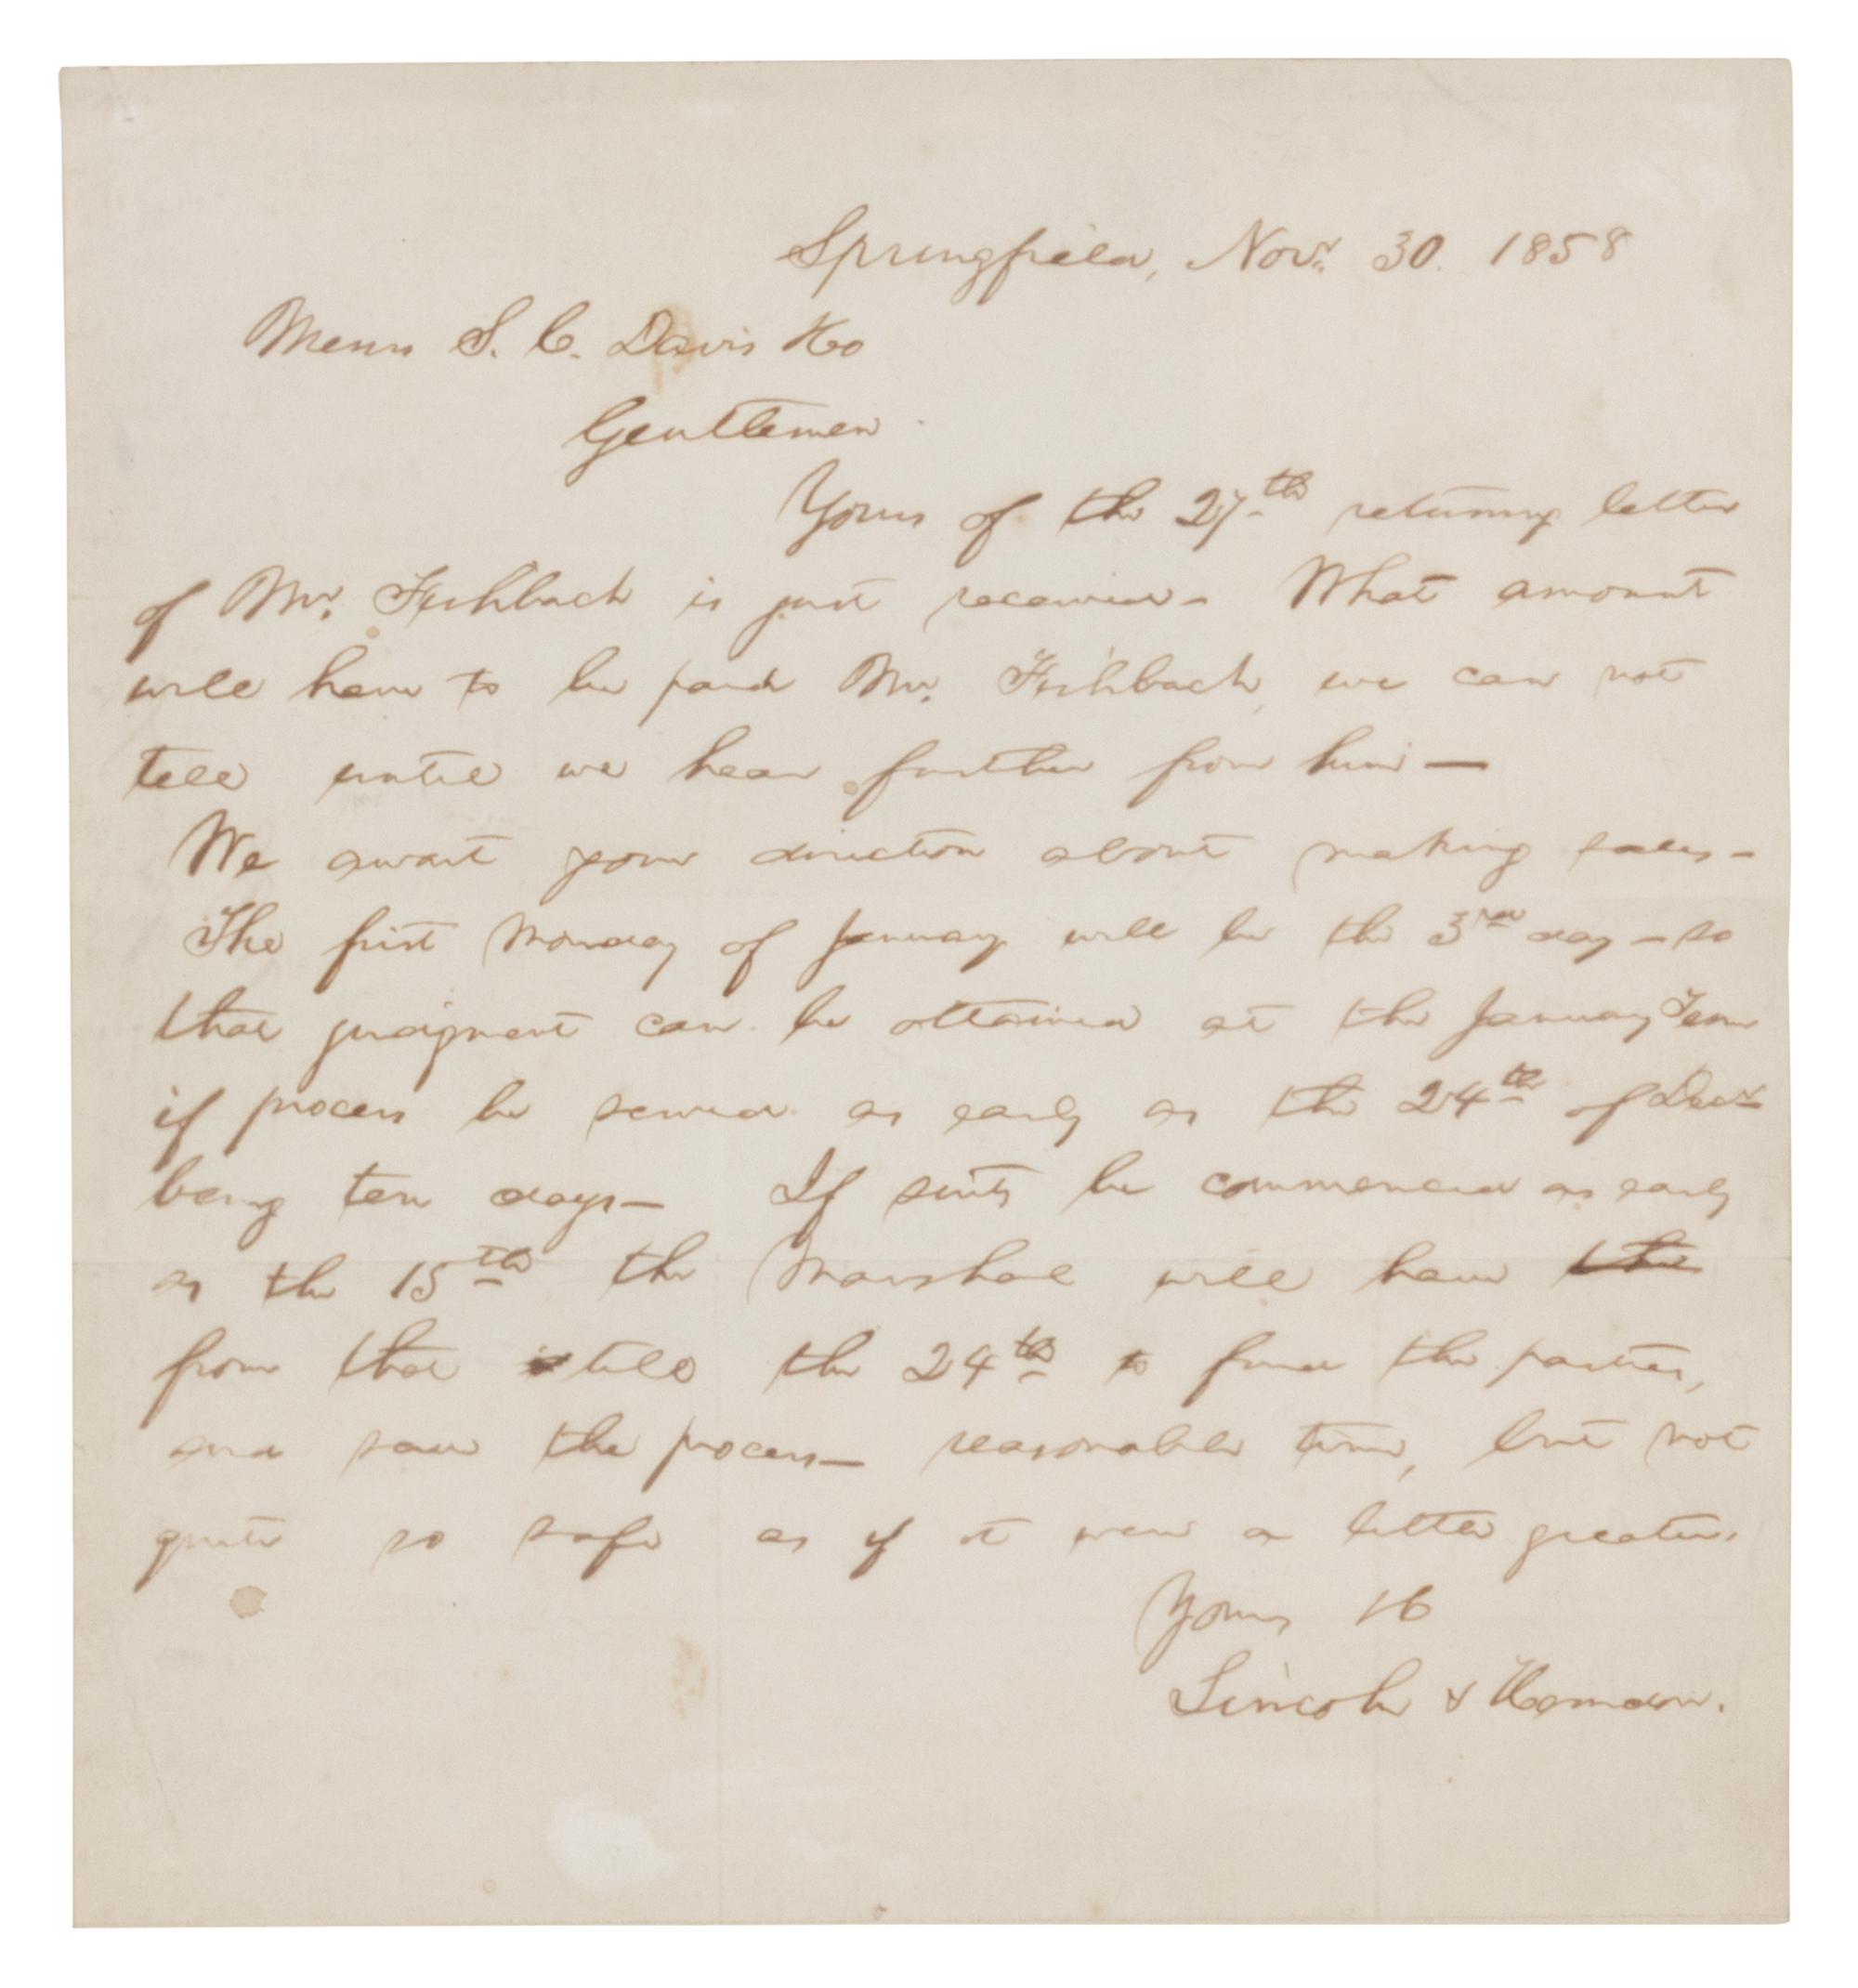 Springfield, Novr. 30. 1858
Messrs S. C. Davis & Co
Gentlemen
Yours of the 27th returning letter
of Mr. Fishback is just received - What amount
will have to be paid Mr. Fishback, we can not
tell until we hear further from him —
We await your direction about making sales -
The first Monday of January will be the 3rd day - so
that judgment can be obtained at the January Term
if process be served as early as the 24th of Decr
being ten days - If suits be commenced as early
as the 15th the Marshal will have the
from that till the 24th to find the parties,
and serve the process - reasonable time, but not
quite so safe as if it were a little greater.
Yours &c
Lincoln & Herndon.